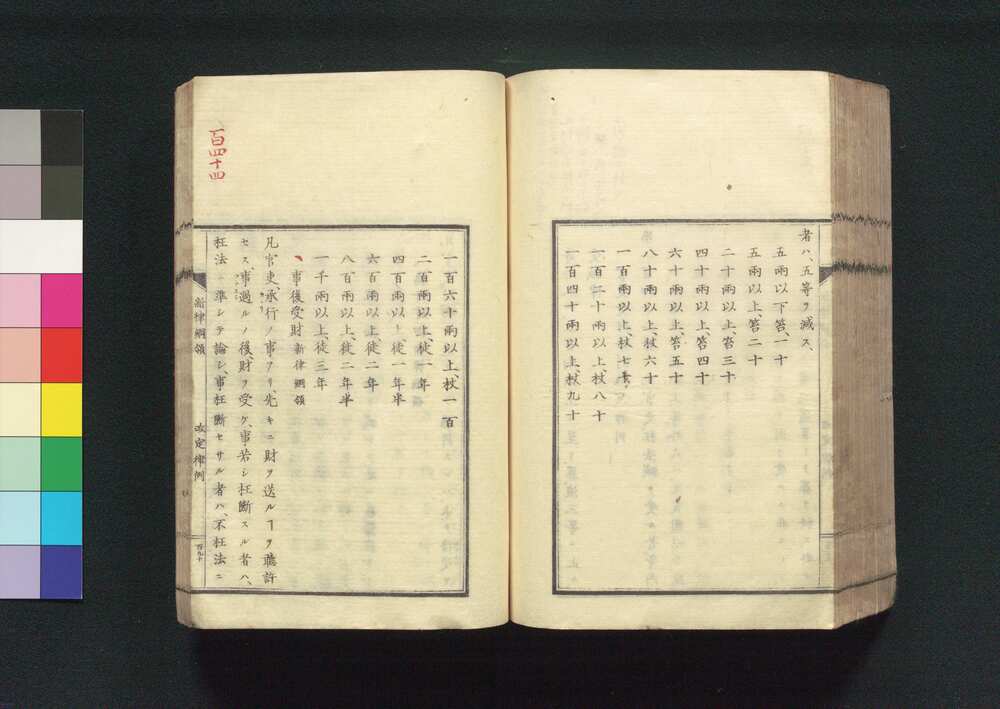 者ハ、五等ヲ減ス、
五兩以下、笞一十
五兩以上、笞二十
二十兩以上、笞三十
四十兩以上、笞四十
六十兩以上、笞五十
八十兩以上、杖六十
一百兩以上、杖七十
一百二十兩以上、杖八十
一百四十兩以上、杖九十
一百六十兩以上、杖一百
二百兩以上、徒一年
四百兩以上、徒一年半
六百兩以上、徒二年
八百兩以上、徒二年半
一千兩以上、徒三年
事後受財 新律綱領
凡官吏、承行ノ事アリ、先キニ財ヲ送ルヿヲ聽許
セス、事過ルノ後、財ヲ受ケ、事若シ枉斷スル者ハ、
枉法ニ準シテ論シ、事枉斷セサル者ハ、不枉法ニ
新律綱領 改定律例
百九十
百四十四